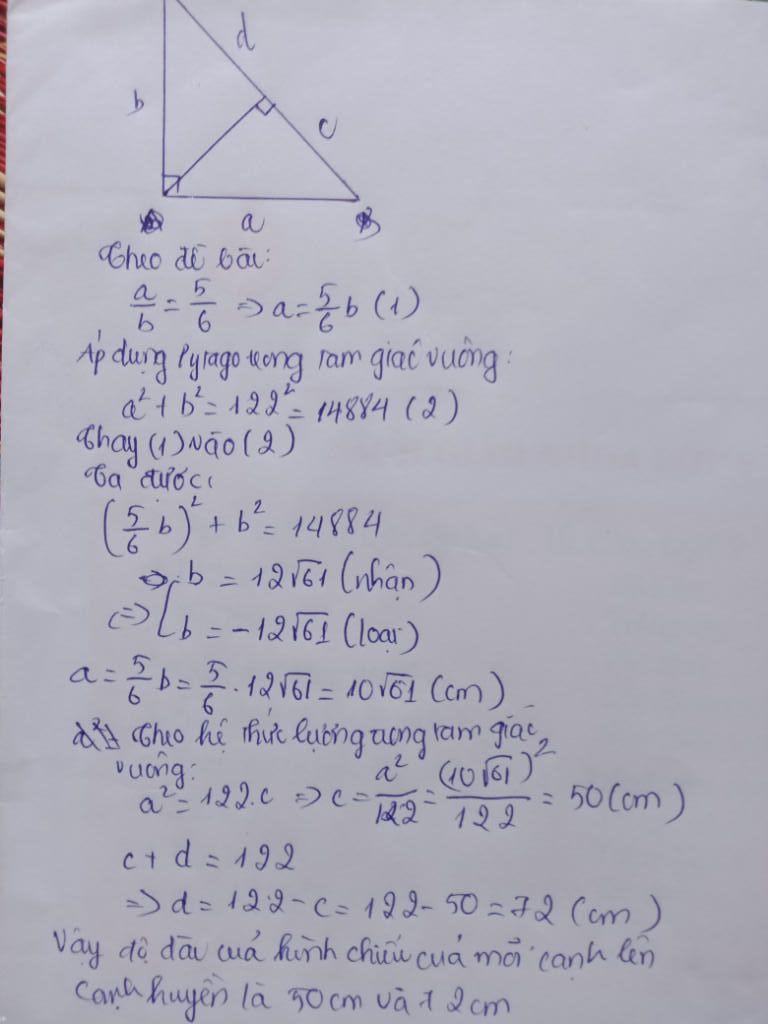 d
b
c
a
Theo đề bài:
a/b = 5/6 => a = 5/6 b (1)
Áp dụng Pytago trong tam giác vuông:
a² + b² = 122² = 14884 (2)
Thay (1) vào (2)
Ta được:
(5/6 b)² + b² = 14884
b = 12√61 (nhận)
<=> [ b = -12√61 (loại)
a = 5/6 b = 5/6 . 12√61 = 10√61 (cm)
Theo hệ thức lượng trong tam giác
vuông:
a² = 122.c => c = a²/122 = (10√61)²/122 = 50 (cm)
c + d = 122
=> d = 122 - c = 122 - 50 = 72 (cm)
Vậy độ dài của hình chiếu của mỗi cạnh lên
cạnh huyền là 50cm và 72cm